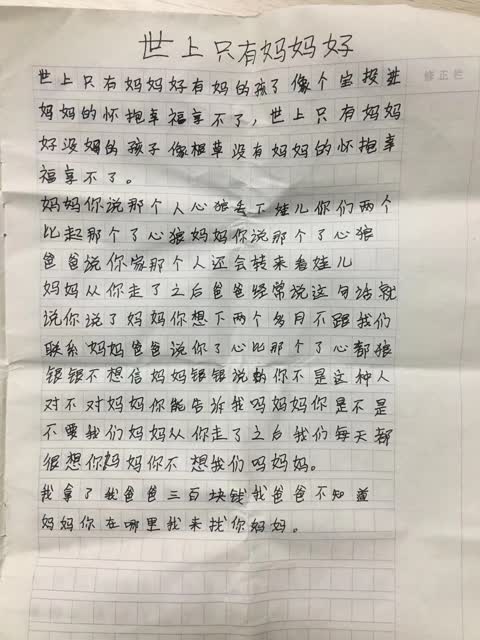 世上只有妈妈好
修正栏
世上只有妈妈好有妈的孩子像个宝投进
妈妈的怀抱幸福享不了，世上只有妈妈
好没妈的孩子像根草没有妈妈的怀抱幸
福享不了。
妈妈你说那个人心狼丢下娃儿你们两个
比起那个了心狼妈妈你说那个了心狼
爸爸说你家那个人还会转来看娃儿
妈妈从你走了之后爸爸经常说这句话就
说你说了妈妈你想下两个多月不跟我们
联系妈妈爸爸说你了心比那个了心都狼
银银不想信妈妈银银说你不是这种人
对不对妈妈你能告诉我吗妈妈你是不是
不要我们妈妈从你走了之后我们每天都
很想你妈妈你不想我们吗妈妈。
我拿了我爸爸三百块钱我爸爸不知道
妈妈你在哪里我来找你妈妈。